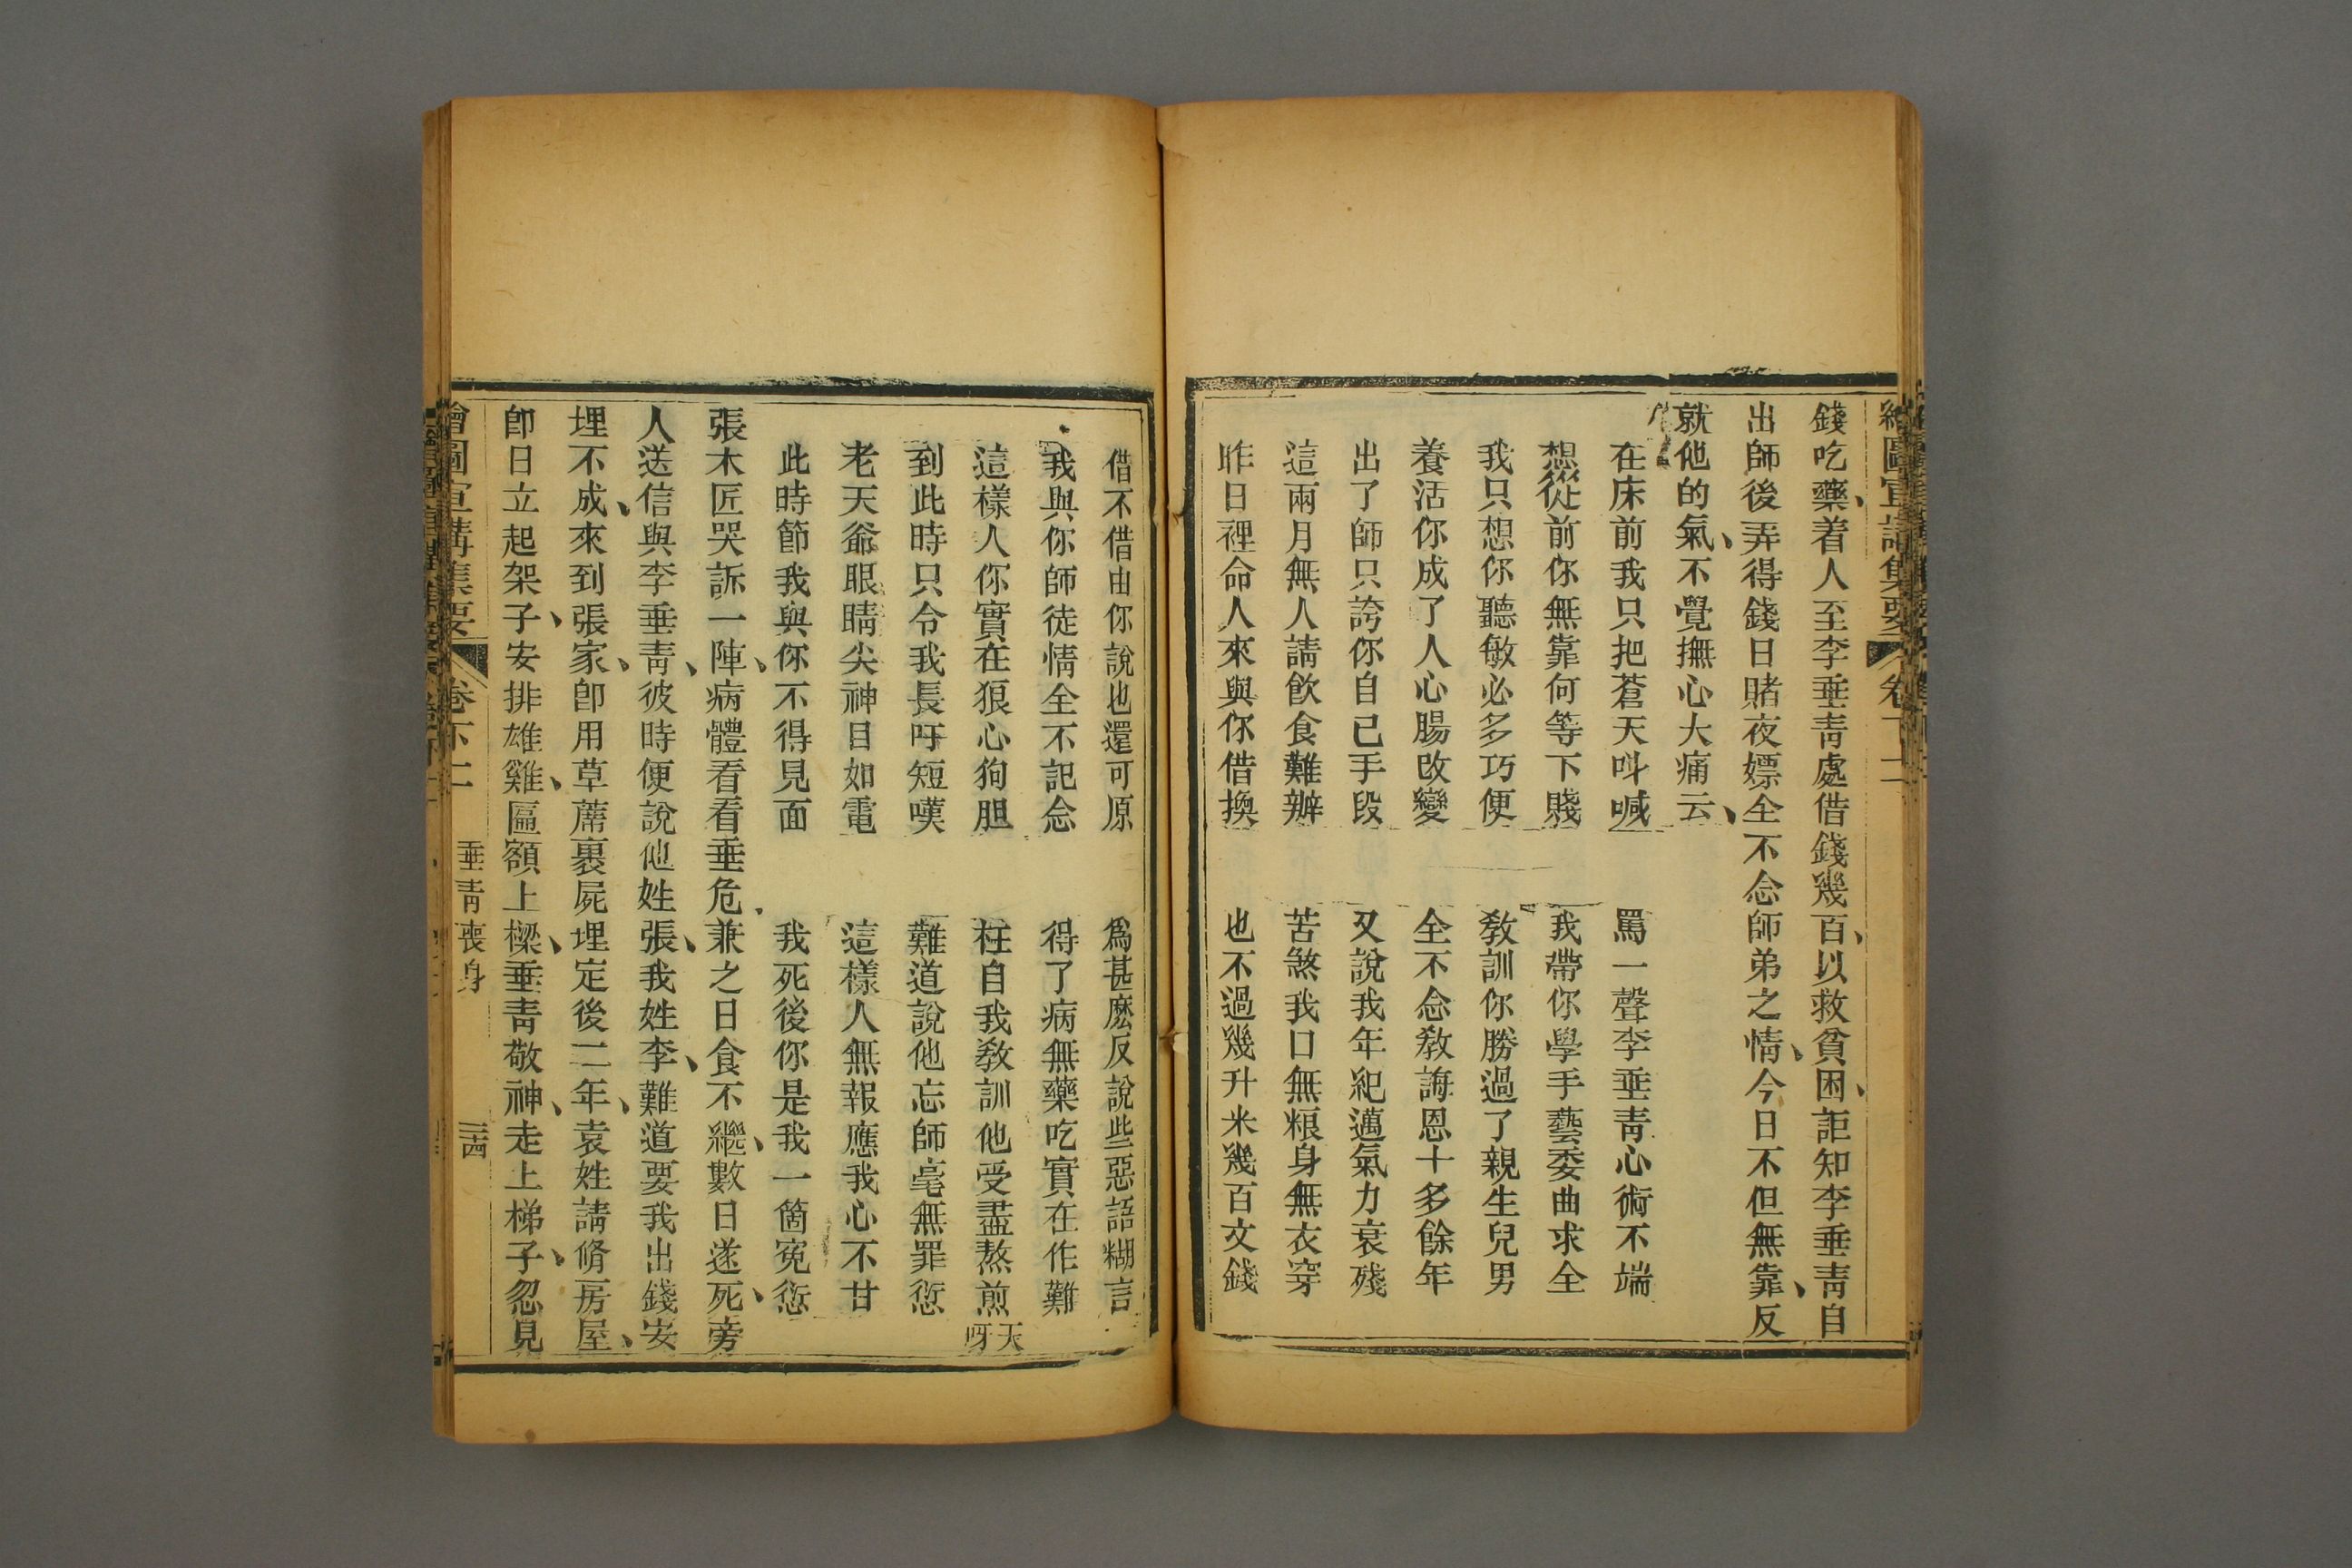 繪圖宣講集要 卷下二
錢吃藥、着人至李垂靑處借錢幾百、以救貧困、詎知李垂靑自
出師後弄得錢日賭夜嫖全不念師弟之情、今日不但無靠、反
就他的氣、不覺撫心大痛云、
在床前我只把蒼天呌喊 罵一聲李垂靑心術不端
想從前你無靠何等下賤 我帶你學手藝委曲求全
我只想你聽敏必多巧便 敎訓你勝過了親生兒男
養活你成了人心腸改變 全不念敎誨恩十多餘年
出了師只誇你自已手段 又說我年紀邁氣力衰殘
這兩月無人請飲食難辦 苦煞我口無粮身無衣穿
昨日裡命人來與你借換 也不過幾升米幾百文錢
借不借由你說也還可原 爲甚麽反說些惡語糊言
我與你師徒情全不記念 得了病無藥吃實在作難
這樣人你實在狼心狗胆 枉自我敎訓他受盡熬煎 天呀
到此時只令我長吁短嘆 難道說他忘師毫無罪愆
老天爺眼睛尖神目如電 這樣人無報應我心不甘
此時節我與你不得見面 我死後你是我一箇寃愆
張木匠哭訴一陣、病體看看垂危、兼之日食不繼、數日遂死、旁
人送信與李垂靑、彼時便說他姓張、我姓李、難道要我出錢安
埋不成、來到張家、卽用草蓆裹屍埋定後二年、袁姓請脩房屋、
卽日立起架子、安排雄雞、匾額上樑、垂靑敬神、走上梯子、忽見
繪圖宣講集要 卷下二 垂靑喪身